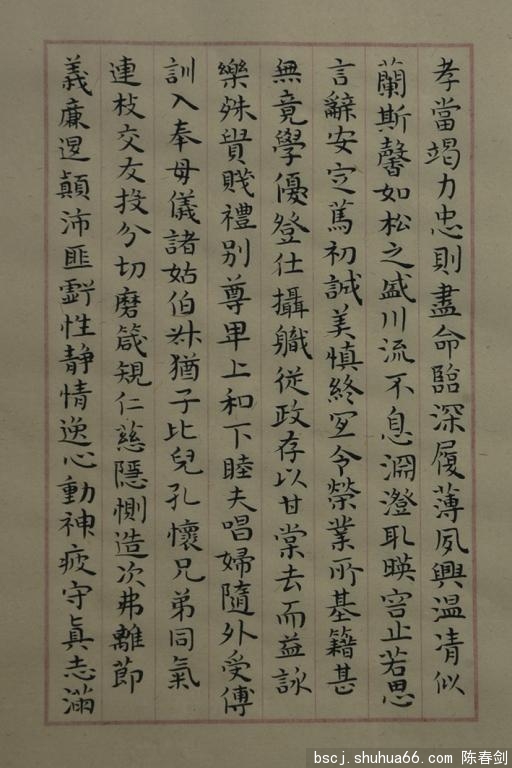 孝當竭力忠則盡命臨深履薄夙興温凊似
蘭斯馨如松之盛川流不息淵澄取暎容止若思
言辭安定篤初誠美慎終宜令榮業所基籍甚
無竟學優登仕攝職從政存以甘棠去而益詠
樂殊貴賤禮别尊卑上和下睦夫唱婦隨外受傅
訓入奉母儀諸姑伯叔猶子比兒孔懷兄弟同氣
連枝交友投分切磨箴規仁慈隱惻造次弗離節
義廉退顛沛匪虧性静情逸心動神疲守真志滿
bscj.shuhua66.com 陈春剑